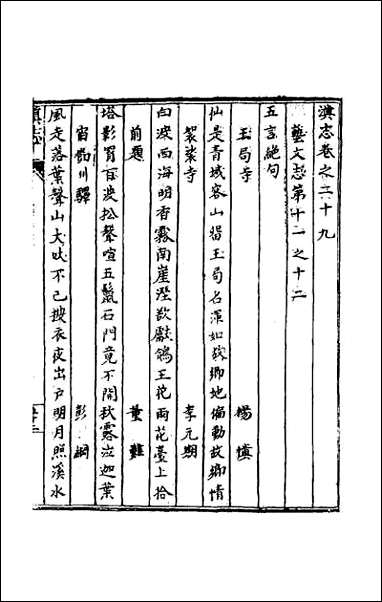 滇志卷之二十九
藝文志第十一之十二
五言絶句
玉局寺 楊慎
仙是青城客山畱玉局名渾如故鄉地偏動故鄉情
袈裟寺 李元期
白波西海明香霧南崖溼欲獻鴿王花雨花臺上拾
前題 董難
塔影罥百波松聲喧五鬣石門竟不開秋露泣迦葉
宿川驛 彭綱
風走落葉聲山犬吠不已披衣夜出戶明月照溪水
滇志